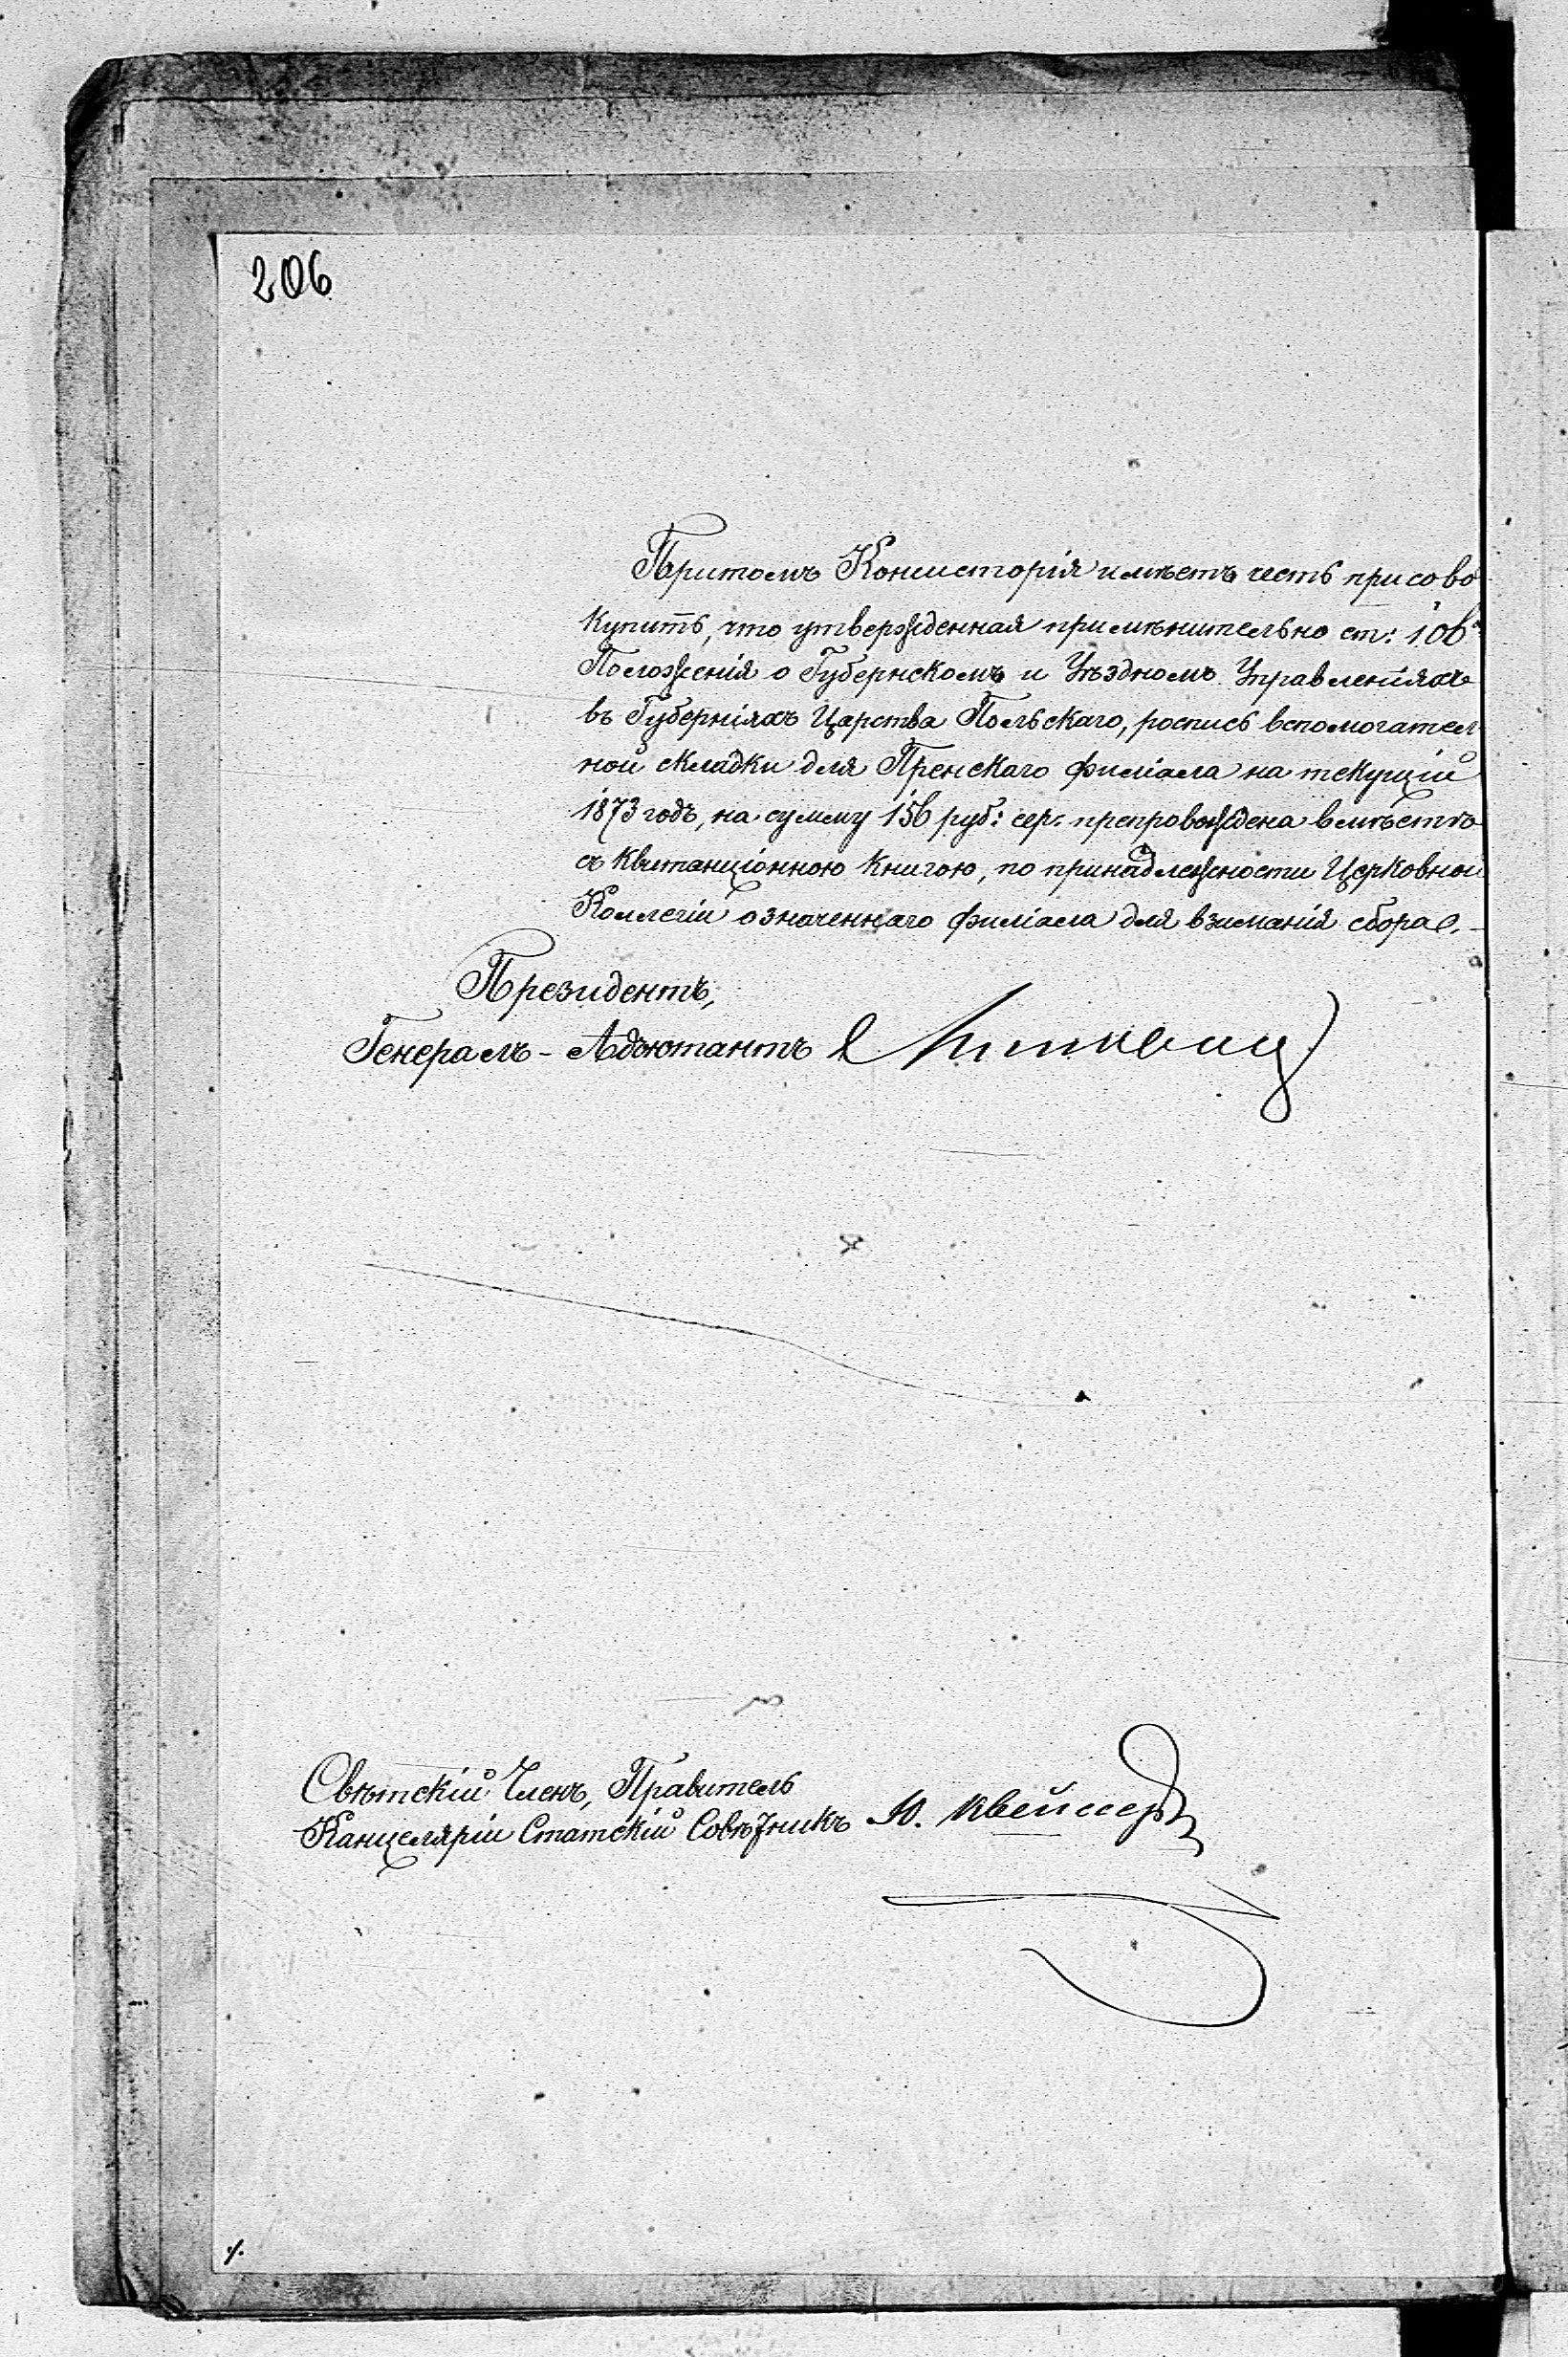 206
Притомъ Консисторія имѣетъ честь присово
купить, что утвержденная примѣнительно ст: 106
Положенія о Губернскомъ и Уѣздномъ Управленіяхъ
въ Губерніяхъ Царства Польскаго, роспись вспомогатель
ной складки для Пренскаго филіала на текущій
1873 годъ, на сумму 156 руб: сер. препровождена вмѣстѣ
съ квитанціонною книгою, по принадлежности Церковной
Коллегіи означеннаго филіала для взиманія сбора.
Президентъ,
Генералъ-Адъютантъ
Свѣтскій Членъ, Правитель
Канцеляріи Статскій Совѣтникъ Ю.